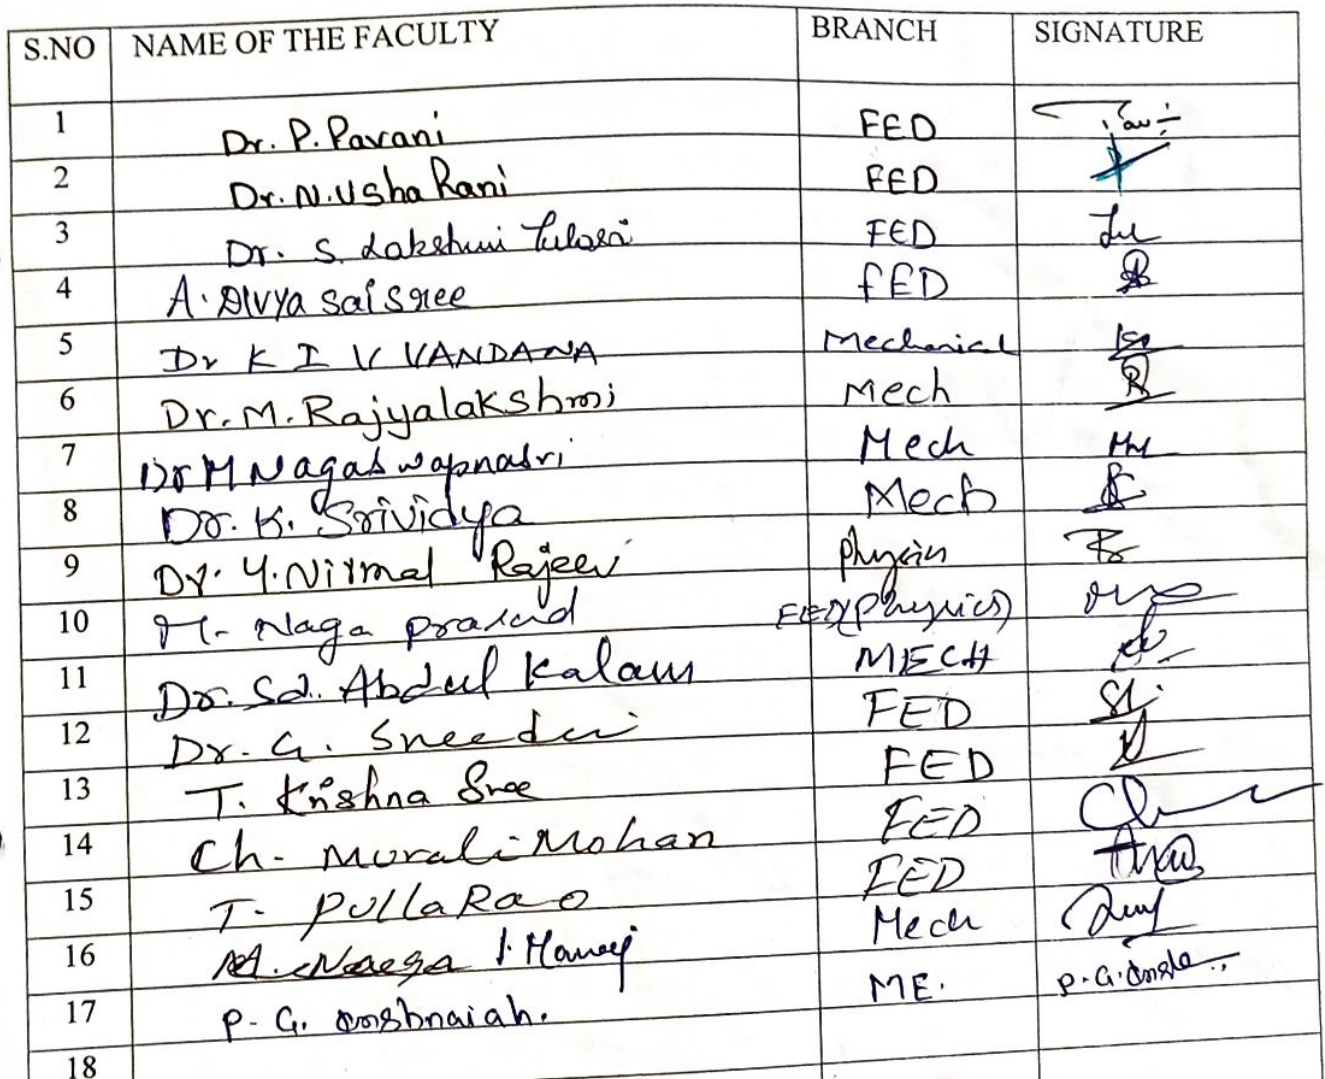 S.NO NAME OF THE FACULTY BRANCH SIGNATURE
1 Dr. P. Pavani FED
2 Dr. N. Usha Rani FED
3 Dr. S. Lakshmi Tulasi FED
4 A. Divya sai sree FED
5 Dr K I V VANDANA Mechanical
6 Dr. M. Rajyalakshmi Mech
7 Dr M Nagaswapnasri Mech
8 Dr. K. Srividya Mech
9 Dr. Y. Nirmal Rajeev Physics
10 M. Naga prasad FED(Physics)
11 Dr. Sd. Abdul Kalam MECH
12 Dr. G. Sreedevi FED
13 T. Krishna Sree FED
14 Ch. Murali Mohan FED
15 T. PullaRao FED
16 Manoj Mech
17 P. G. ME.
18